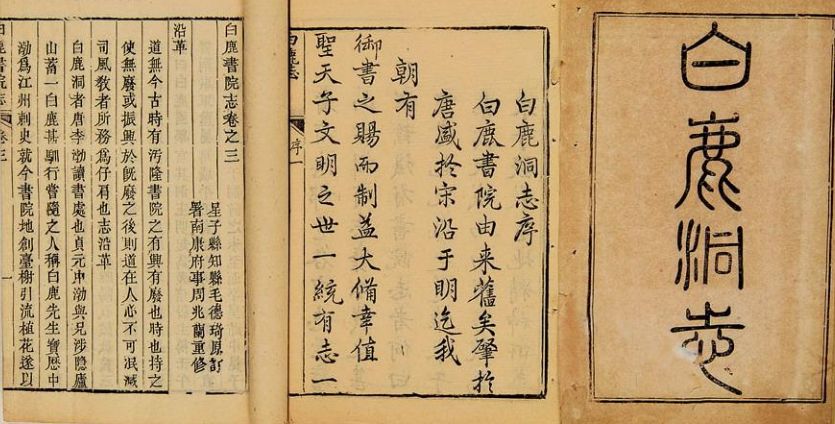 白鹿洞志
白鹿洞志序
白鹿書院由来舊矣肇於
唐盛於宋沿于明迄我
朝有
御書之賜而制益大備幸值
聖天子文明之世一統有志一
白鹿志
序
一
白鹿書院志卷之三
星子縣知縣毛德琦原訂
署南康府事周兆蘭重修
沿革
道無今古時有汚隆書院之有興有廢也時也持之
使無廢或振興於旣廢之後則道在人心不可泯滅
司風敎者所務爲仔肩也志沿革
白鹿洞者唐李渤讀書處也貞元中渤與兄涉隐廬
山蓄一白鹿甚馴行嘗隨之人稱白鹿先生寳歷中
渤爲江州刺史就今書院地創臺榭引流植花遂以
白鹿書院志
卷三
一